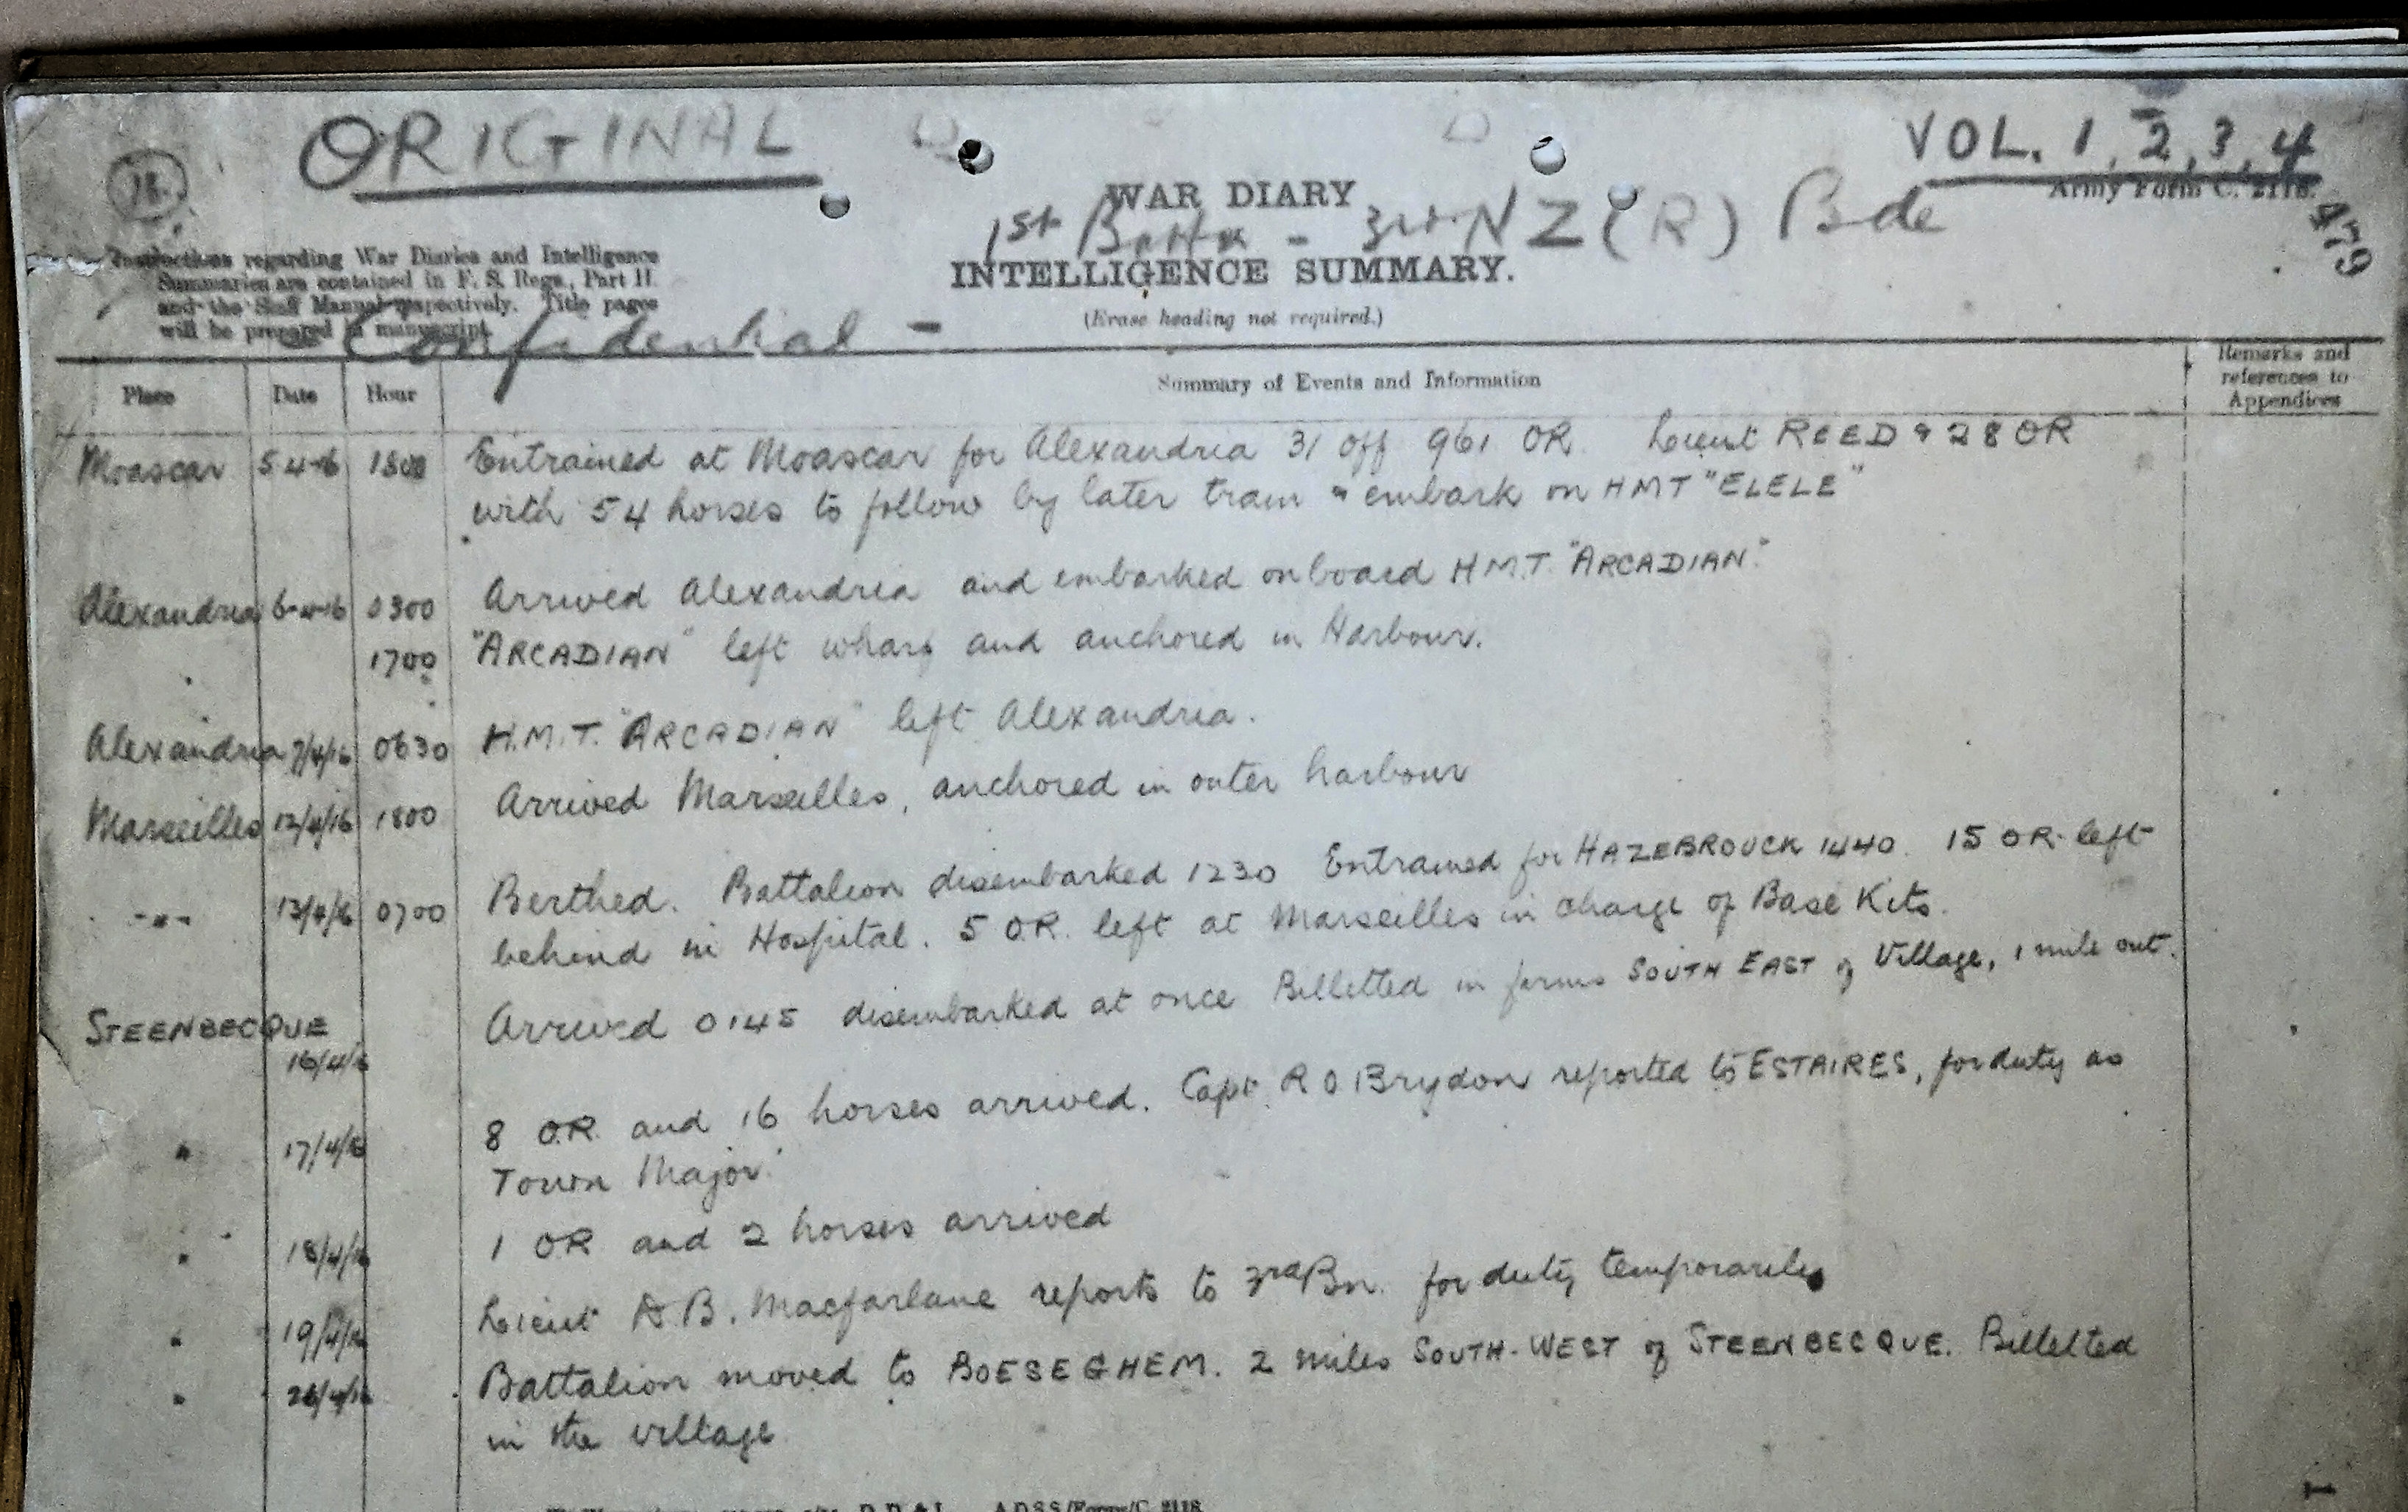 ORIGINAL
VOL. 1, 2, 3, 4
18.
WAR DIARY
Army Form C. 2118.
1st Battn - 3rd NZ (R) Bde
479
Instructions regarding War Diaries and Intelligence
Summaries are contained in F. S. Regs., Part II.
and the Staff Manual respectively. Title pages
will be prepared in manuscript.
INTELLIGENCE SUMMARY.
(Erase heading not required.)
Confidential -
Place Date Hour Summary of Events and Information Remarks and references to Appendices
Moascar 5-4-16 1800 Entrained at Moascar for Alexandria 31 Off 961 OR. Lieut REED & 28 OR
with 54 horses to follow by later train & embark on HMT "ELELE"
Alexandria 6-4-16 0300 Arrived Alexandria and embarked on board H.M.T. "ARCADIAN."
1700 "ARCADIAN" left wharf and anchored in Harbour.
Alexandria 7/4/16 0630 H.M.T. "ARCADIAN" left Alexandria.
Marseilles 12/4/16 1800 Arrived Marseilles, anchored in outer harbour
-"- 13/4/16 0700 Berthed. Battalion disembarked 1230 Entrained for HAZEBROUCK 1440. 15 OR left
behind in Hospital. 5 O.R. left at Marseilles in charge of Base Kits.
STEENBECQUE 16/4/16 Arrived 0145 disembarked at once Billetted in farms SOUTH EAST of Village, 1 mile out.
" 17/4/16 8 O.R. and 16 horses arrived. Capt. R O Brydon reported to ESTAIRES, for duty as
Town Major.
" 18/4/16 1 OR and 2 horses arrived
" 19/4/16 Lieut D.B. Macfarlane reports to 3rd Bn. for duty temporarily
" 26/4/16 Battalion moved to BOESEGHEM. 2 miles SOUTH-WEST of STEENBECQUE. Billetted
in the village
A.D.S.S./Forms/C. 2118.